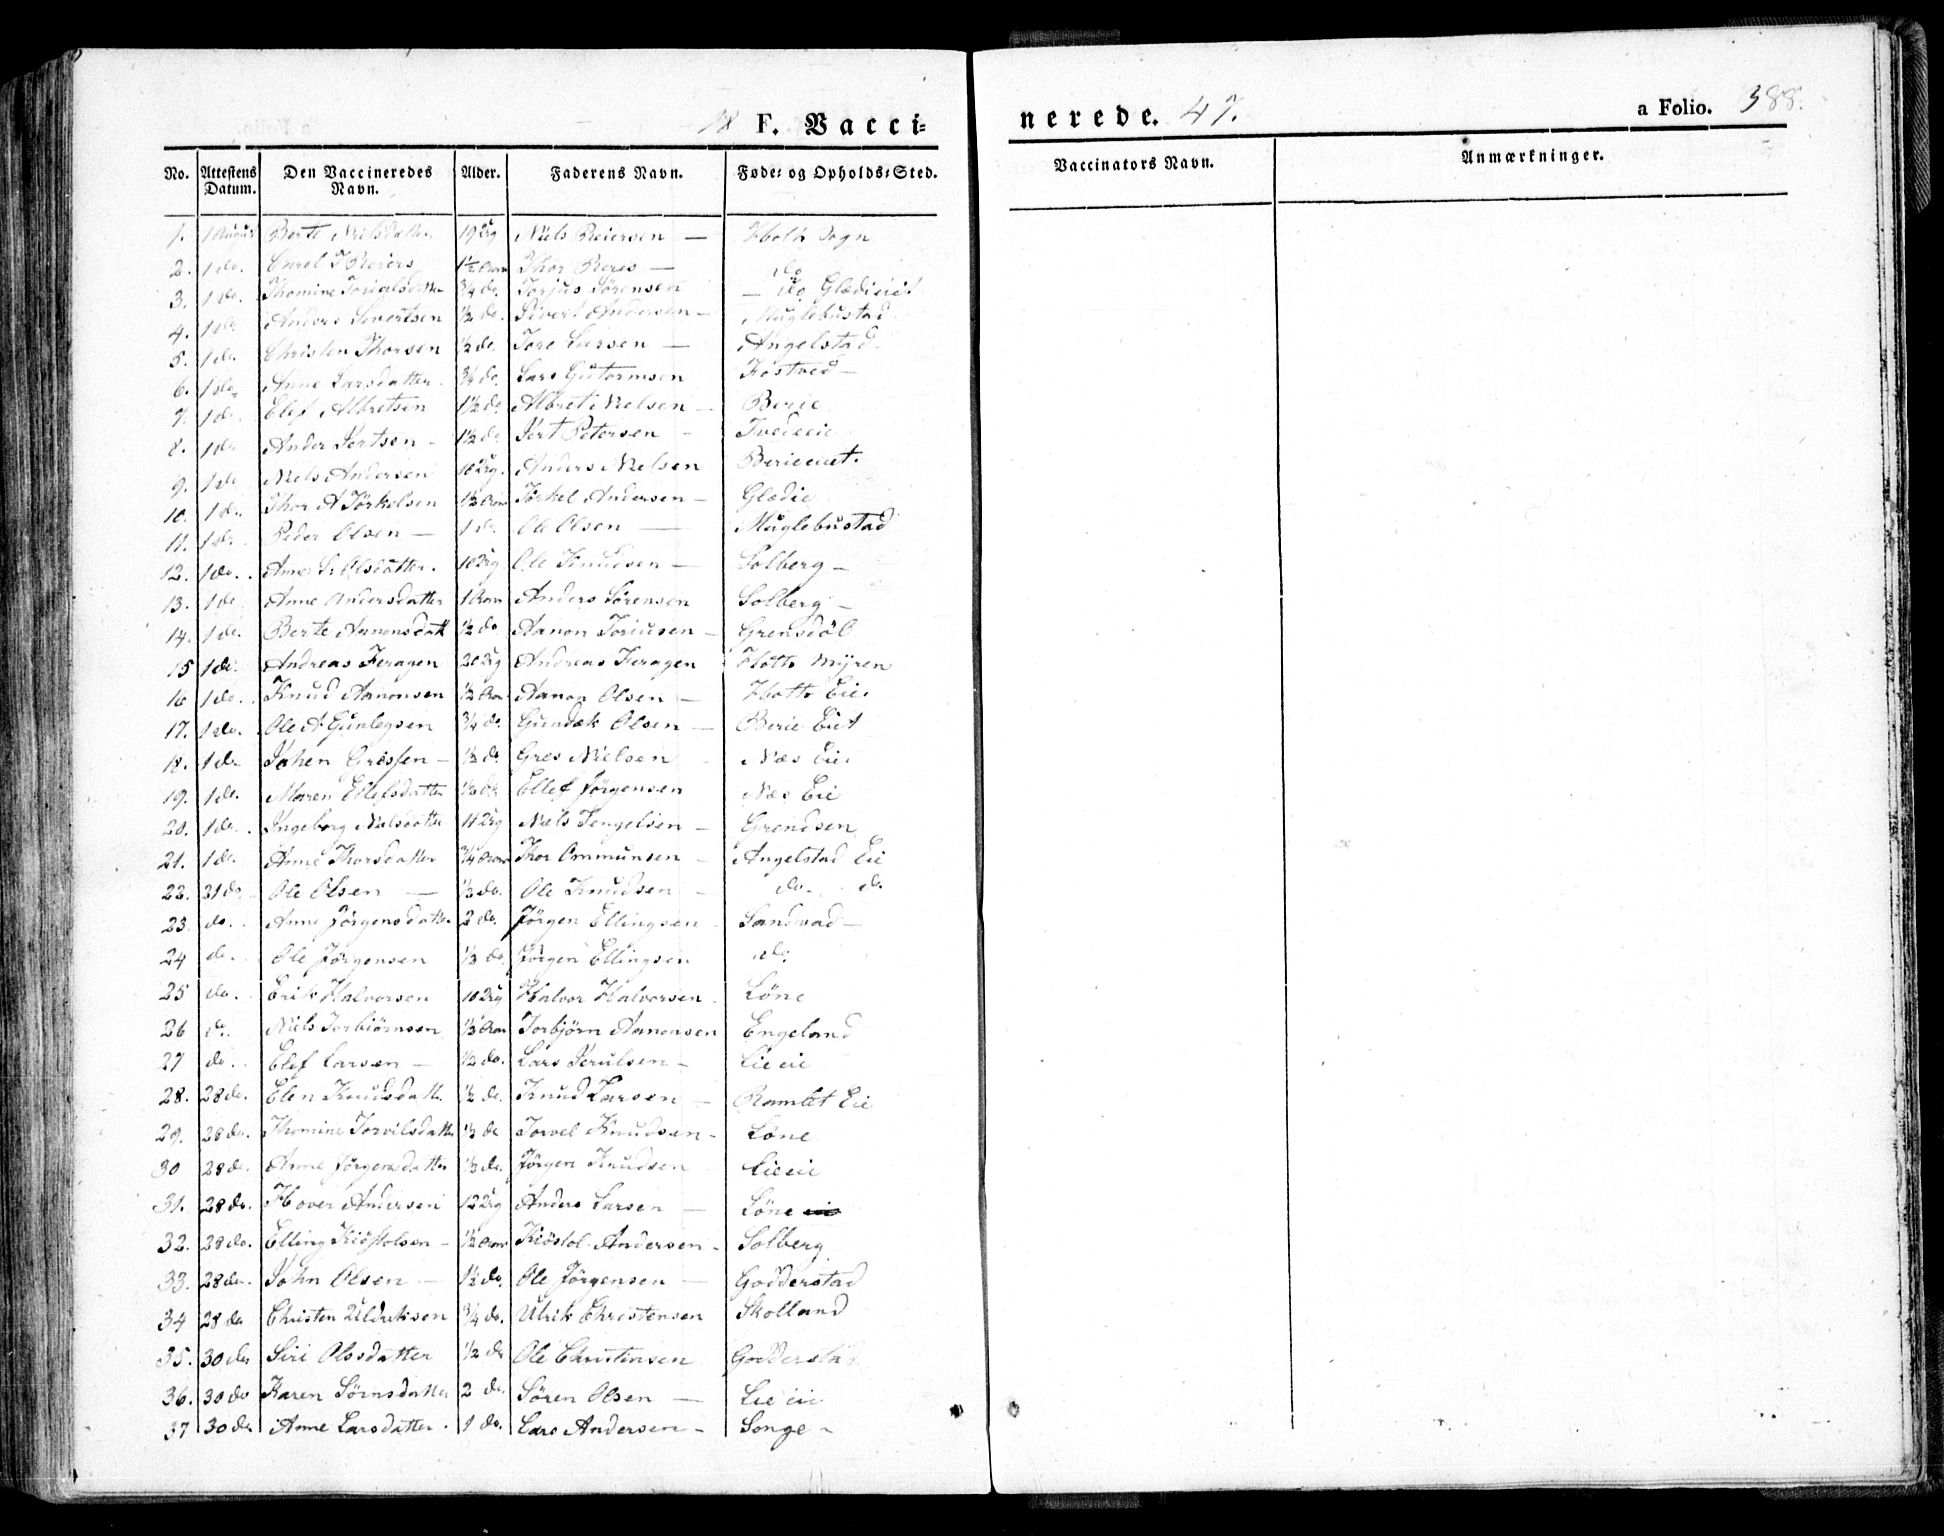 18 F. Vacci=
nerede. 47.
a Folio. 388.
No. Attestens Datum. Den Vaccineredes Navn. Alder. Faderens Navn. Føde= og Opholds=Sted. Vaccinators Navn. Anmærkninger.
1. 1 August Berte Nielsdatter 19 Niels Reiersen — Holt Sogn
2. 1 do. 1½ Thor — do
3. 1 do. Thomine ¾ do. Torjus Sörensen — do
4. 1 do Anders Sivertsen ½ do. Sivert Andersen — Müglebustad
5. 1 do. Christen Thorsen ½ do. Tore Larsen — Angelstad
6. 1 do. Anne Larsdatter. ¾ do. Lars Gutormsen Töstved —
7. 1 do. Elef Albretsen 1½ do Albret Nielsen — Berie
8. 1 do 1½ do Petersen — Tvedeeie
9. 1 do Niels Andersen 10 Anders Nielsen
10. 1 do. Thor A Törkelsen 1½ Törkel Andersen — Glædie
11. 1 do. Peder Olsen — 1 do Ole Olsen — Müglebüstad
12. 1 do. Anne Olsdatter. 10 Ole Knudsen — Solberg —
13. 1 do Anne Andersdatter 1 Anders Sörensen Solberg —
14. 1 do. Berte Aanonsdatt ½ do Aanon Toriusen — Grensdöl
15 1 do. Andreas Feragen 20 Andreas Feragen Holts Myren
16 1 do. Knud Aanonsen ½ Aanon Olsen — Holts Eie.
17. 1 do. Ole A Günlegsen ¾ do. Gundek Olsen — Berie Eiet
18. 1 do — ½ do Gres Nielsen — Næs Eie.
19. 1 do. Maren Ellefsdatter do Ellef Jörgensen Næs Eie
20. 1 do. Ingeborg 11 Niels Tengelsen — Grendsen
21. 1 do. Anne Thorsdatter ¾ Thor Ommunsen — Angelstad Eie
22. 31 do. Ole Olsen — ½ do. Ole Knudsen — do. do.
23. do. Anne Jörgensdatter 2 do. Jörgen Ellingsen Sandvad —
24 do. Ole Jörgensen do Jörgen Ellingsen do.
25 do. Erik Halvorsen 10 Halvor Halvorsen — Löne
26 do. Niels Torbiörnsen Torbjörn Aanonsen Engeland
27 do. Elef Larsen — ½ do. Lars — Lieeie
28. 28 do. Elen Knudsdatt ½ do. Knud Larsen — Ramlet Eie
29. 28 do. Thomine Torvilsdatter ½ do Torvel Knudsen — Löne
30 28 do. Anne Jörgensdatter ½ do. Jörgen Knudsen Lieeie
31. 28 do. Hover Andersen 12 Anders Larsen — Löne
32. 28 do. Elling Kiöstolsen — ½ Kiöstol Andersen — Solberg
33. 28 do. John Olsen — 1½ do. Ole Jörgensen — Godderstad
34 28 do Christen Uldriksen ¾ do. Ulrik Christensen Skolland
35. 30 do Siri Olsdatter ½ do Ole Christinsen Godderstad
36. 30 do Karen Sörnsdatter 2 do. Sören Olsen — Lie eie
37 30 do Anne Larsdatter. 1 do. Lars Andersen — Songe —